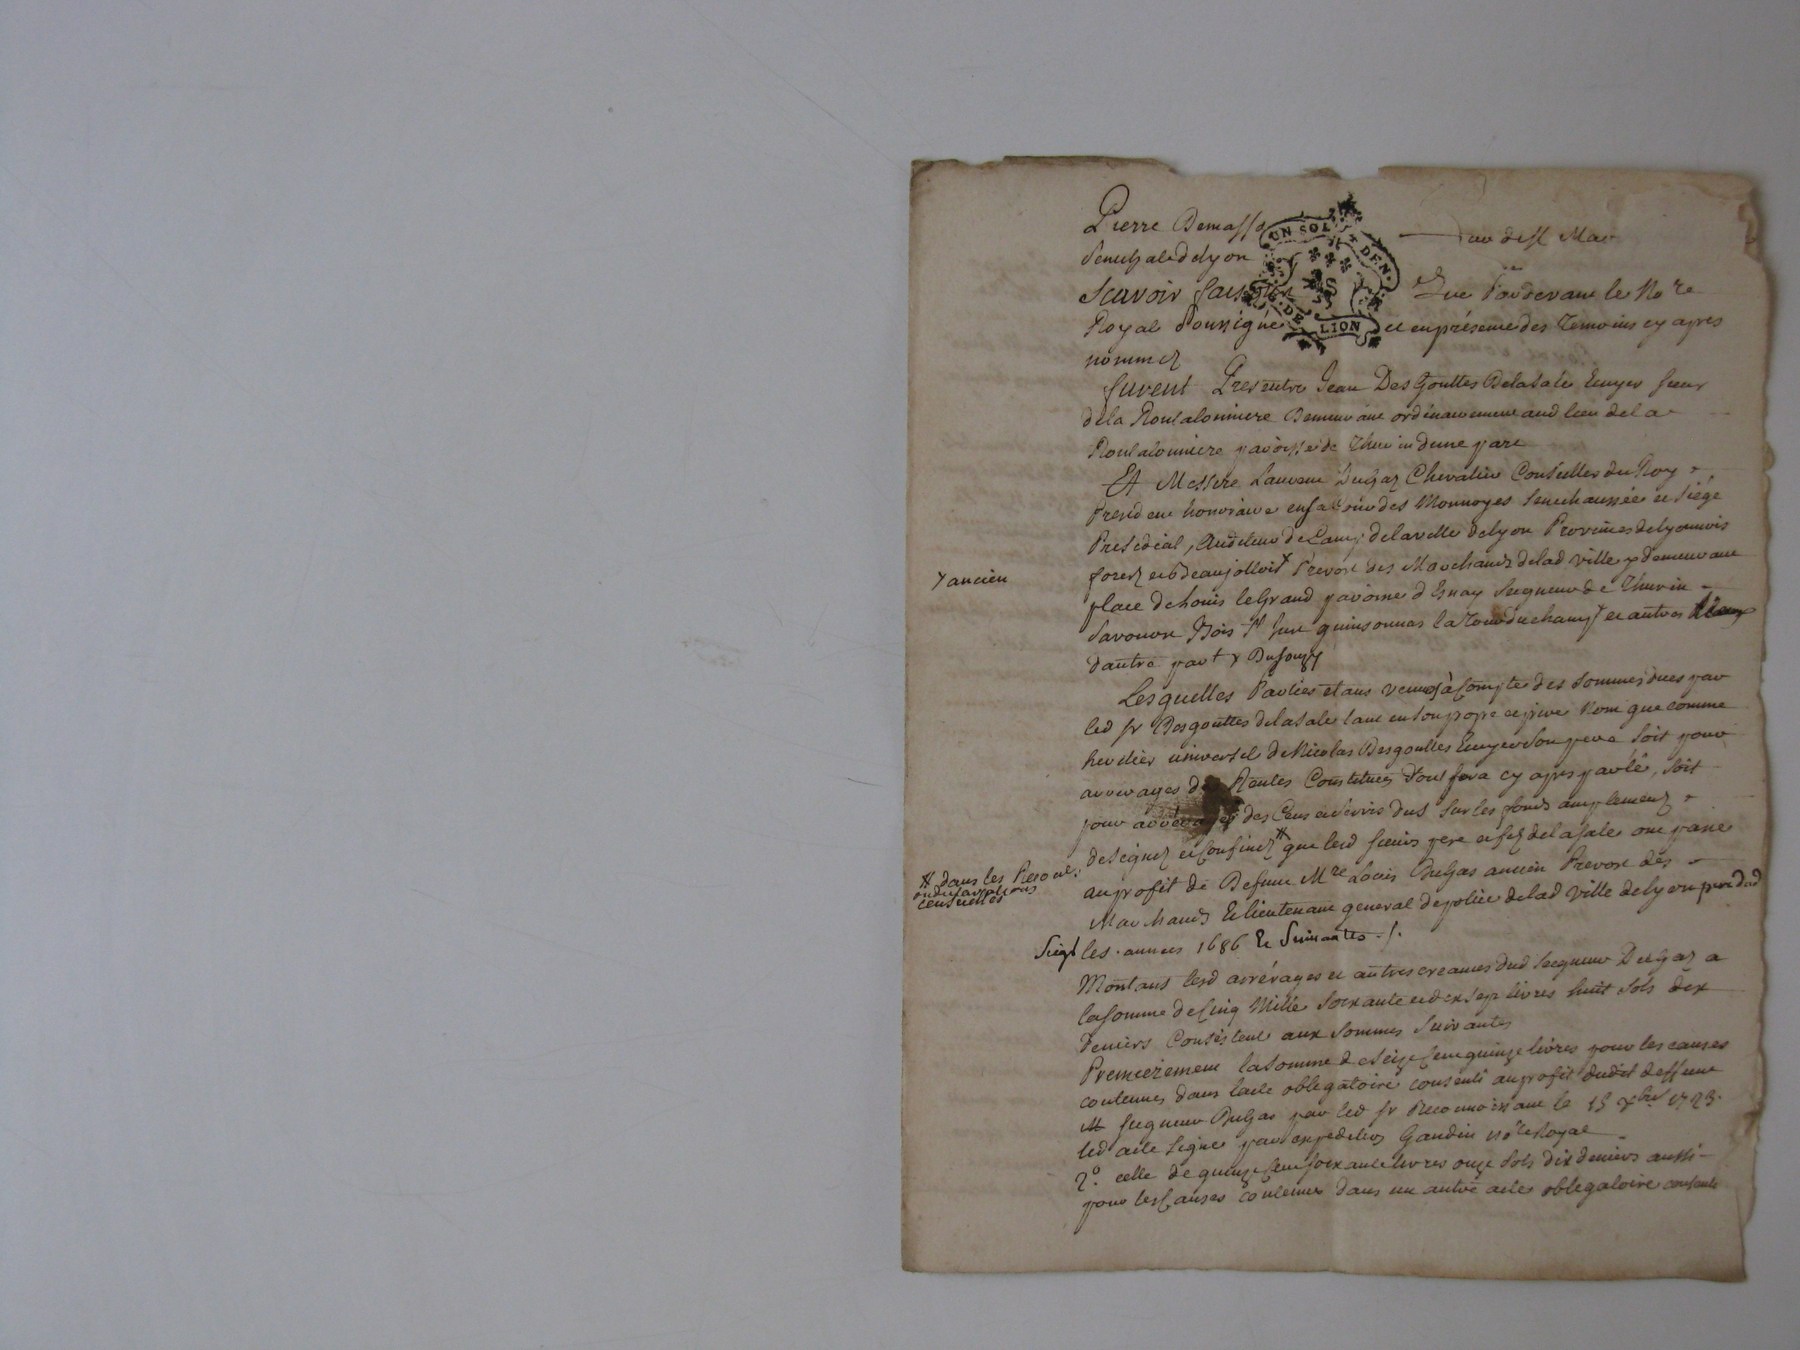 Pierre Demasso
UN SOL X DEN.
G. DE LION
Senechal de lyon
Scavoir faisons Que Pardevant le Nore
Royal Soussigné et en présence des temoins cy apres
nommez
furent Presents Jean Des Gouttes Delasale Ecuyer sieur
de la Ronsalonniere Demeurant ordinairement aud lieu de la
Ronsalonniere paroisse de Thurin dune part
Et Messire Laurent Dugaz Chevalier Conseiller du Roy
President honoraire en la Cour des Monnoyes Senechaussée et Siége
Presidial, de la ville de lyon Provinces de lyonnois
forez et beaujollois Prevost des Marchands de lad ville demeurant
y ancien
place de Louis le Grand paroisse d'Esnay Seigneur de Thurin
Savonon Bois St Just quinsonnas la Tour Duchamp et autres
dautre part
Lesquelles Parties etant venues à Compte des sommes dues par
led sr Desgouttes delasale tant en son propre et privé Nom que comme
heritier universel de Nicolas Desgouttes Ecuyer Son pere soit pour
arrerages de Rentes Constituées dont sera cy apres parlé, soit
pour arrerages des Cens et servis dus sur les fonds amplement
designez et Confinez que lesd sieurs pere et fils delasale ont passé
# dans les
censuelles
au profit de Defunt Mre Louis Dugas ancien Prevost des
Marchands Et lieutenant general de police de lad ville de lyon
les années 1686 Et Suivantes
Montans lesd arrérages et autres creances dud seigneur Dugaz a
la somme de Cinq Mille soixante et dix sept livres huit sols dix
deniers Consistent aux sommes suivantes
Premierement la somme de seize Cent quinze livres pour les causes
contenues dans lacte obligatoire consenti au profit dudit deffunt
seigneur Dugas par led sr le 15 xbre 1723.
led acte signé par expedition Gaudin note Royal
2o. celle de quinze Cent soixante livres onze sols dix deniers aussi
pour les Causes contenues dans un autre acte obligatoire consenti